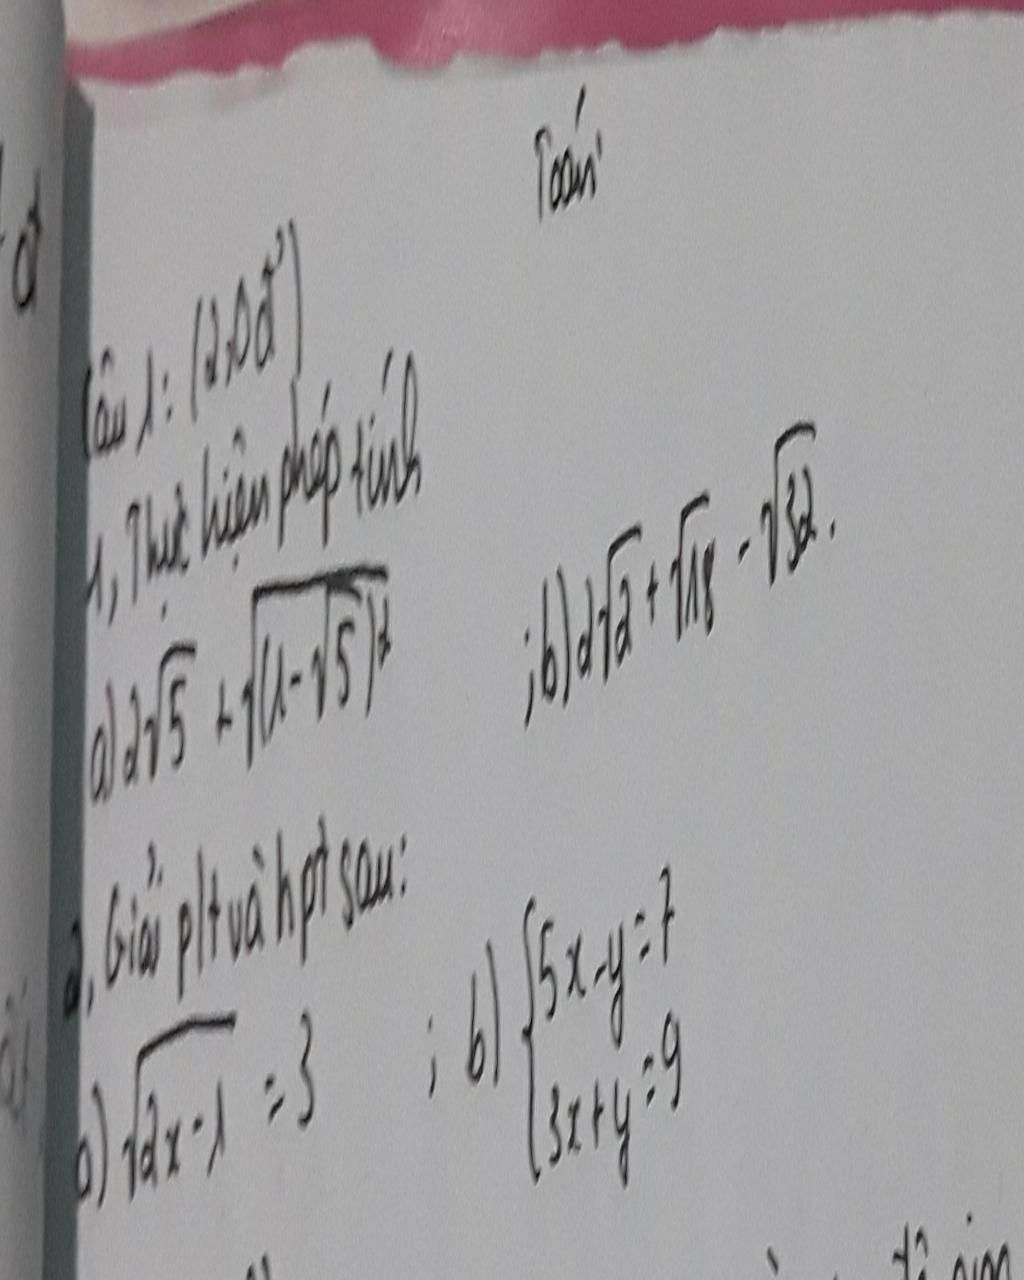 Toán
Câu 1: (2,0đ)
1, Thực hiện phép tính
a) 2√5 + √(1-√5)² ; b) 2√2 + √18 - √32.
2, Giải pt và hpt sau:
a) √2x-1 = 3 ; b) { 5x-y=7
3x+y=9